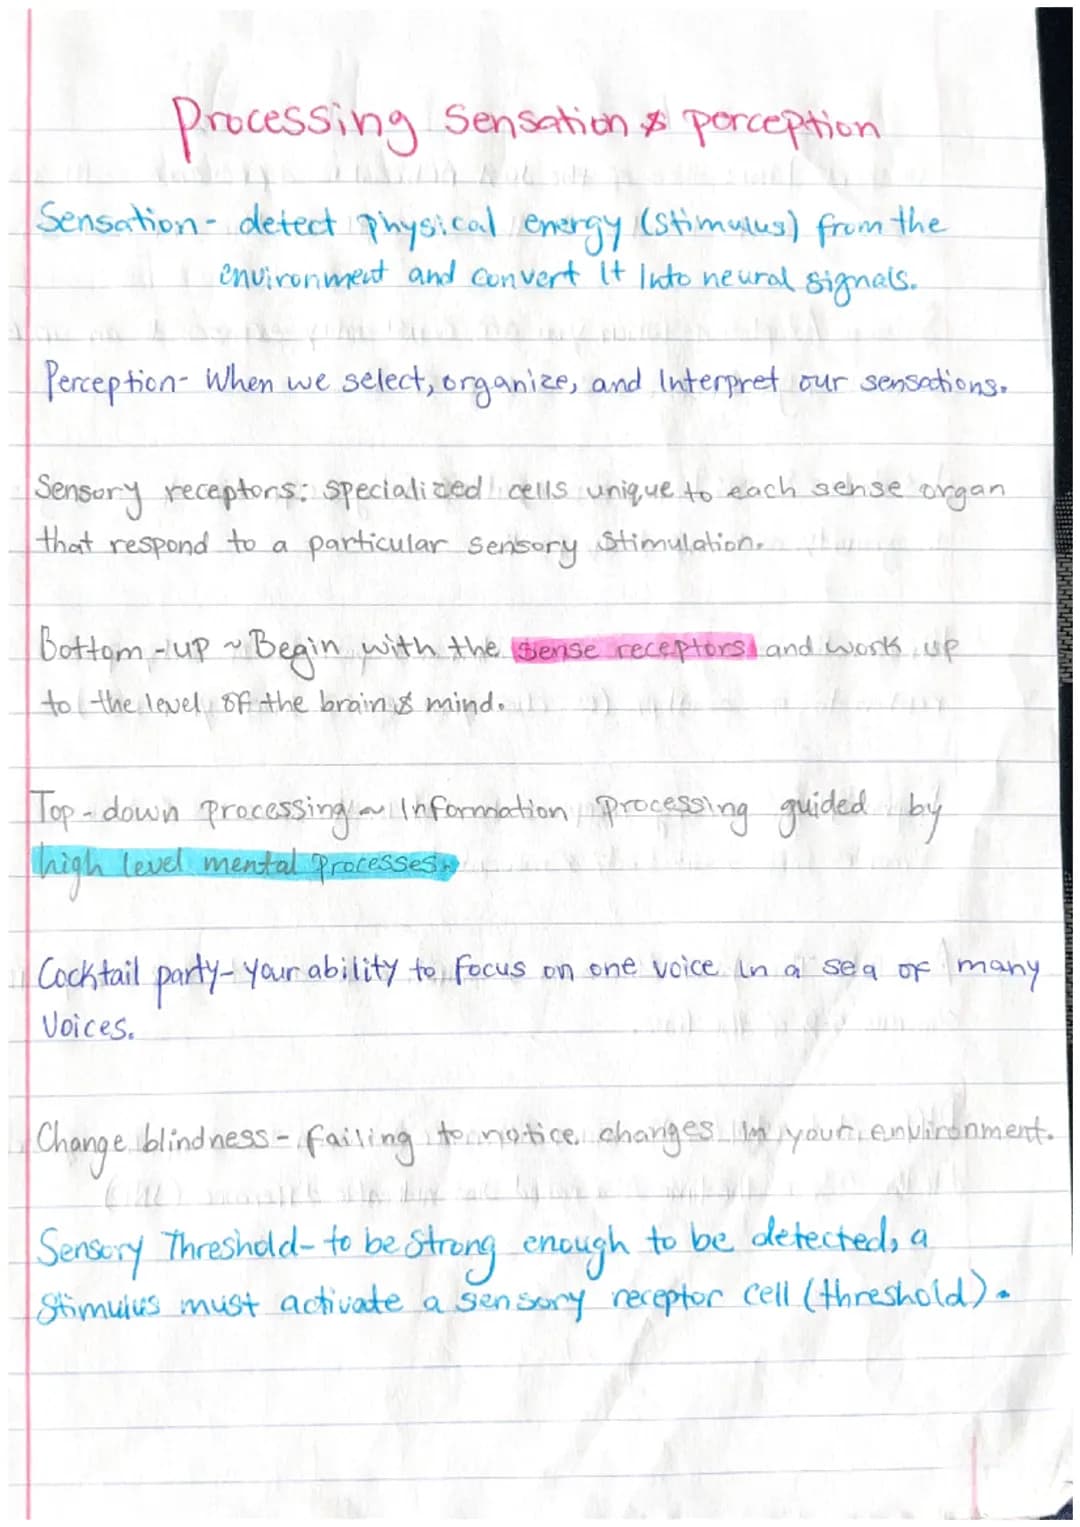 Processing Sensation & perception
Sensation- detect physical energy (stimulus) from the
environment and convert it into neural signals.
Perception- When we select, organize, and Interpret our sensations.
Sensory receptors: specialized cells unique to each sense organ
that respond to a particular sensory stimulation.
Bottom-up ~ Begin with the sense receptors and work up
to the level of the brain & mind.
Top-down processing ~ Information processing guided by
high level mental processes.
Cocktail party- your ability to focus on one voice in a sea of many
Voices.
Change blindness- failing to notice changes in your environment.
Sensory Threshold- to be strong enough to be detected, a
Stimulus must activate a sensory receptor cell (threshold).